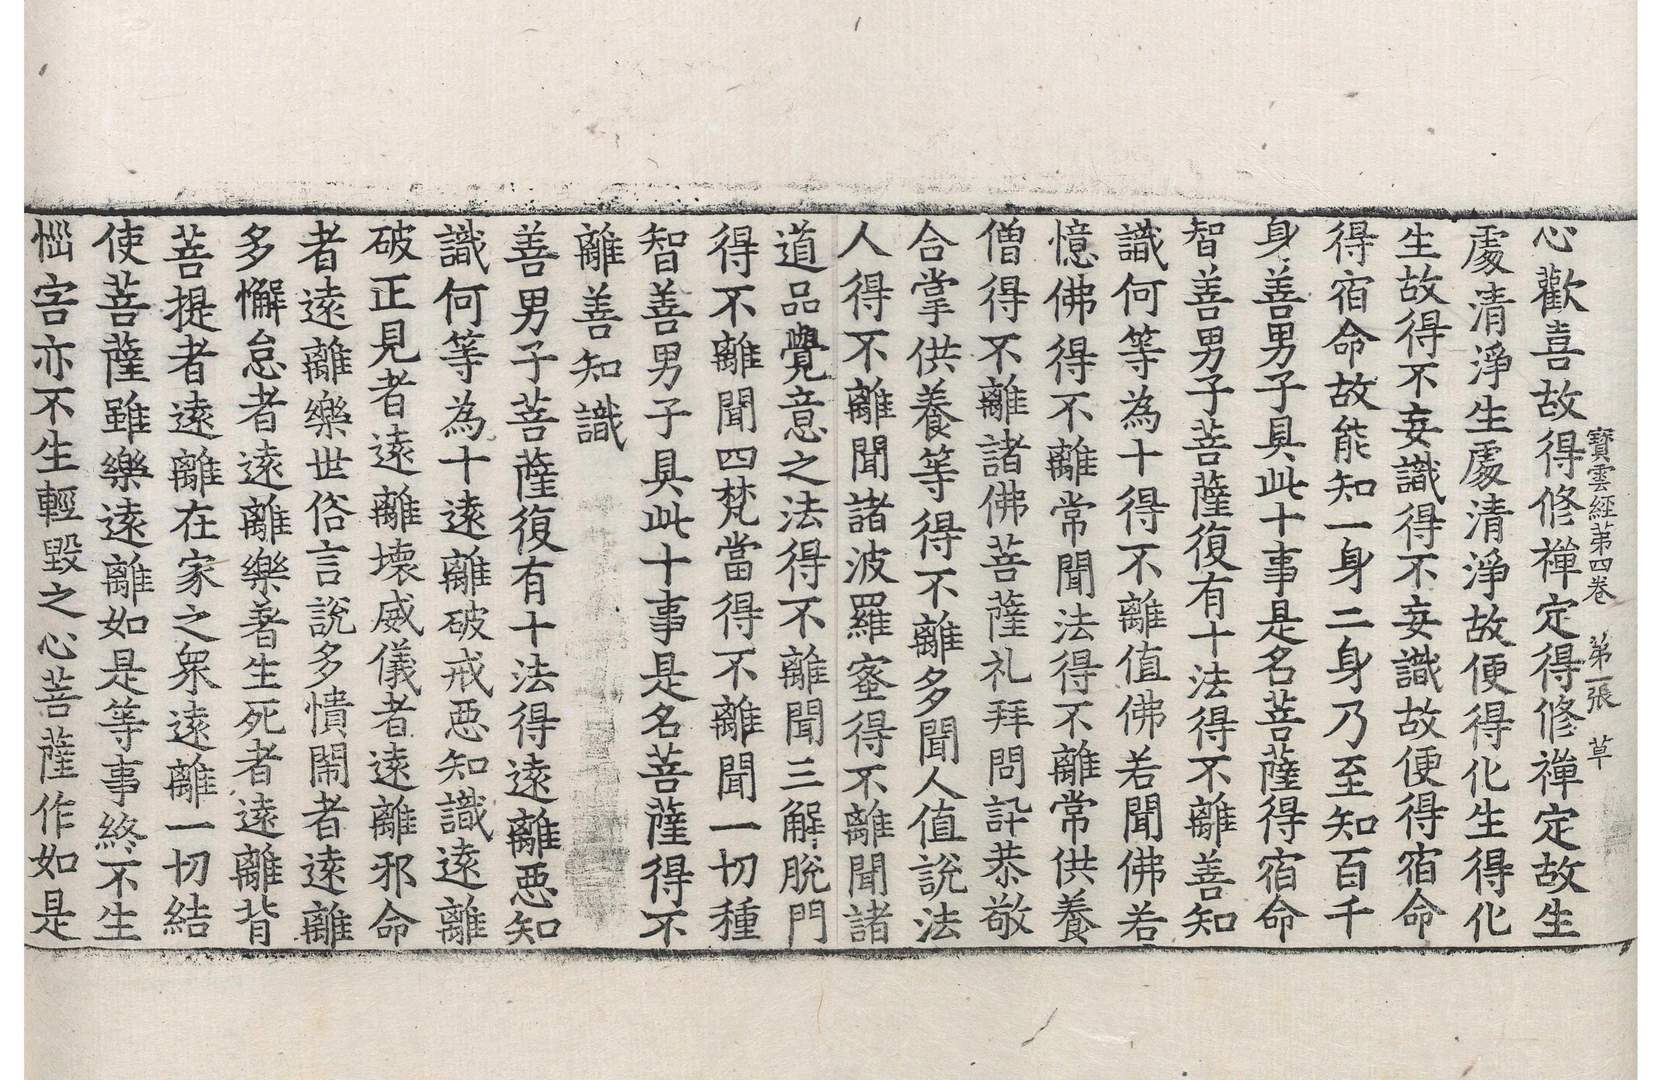 寶雲經苐四卷　苐一張　草
心歡喜故得修禪定得修禪定故生
處清淨生處清淨故便得化生得化
生故得不妄識得不妄識故便得宿命
得宿命故能知一身二身乃至知百千
身善男子具此十事是名菩薩得宿命
智善男子菩薩復有十法得不離善知
識何等為十得不離值佛若聞佛若
憶佛得不離常聞法得不離常供養
僧得不離諸佛菩薩礼拜問訊恭敬
合掌供養等得不離多聞人值說法
人得不離聞諸波羅蜜得不離聞諸
道品覺意之法得不離聞三解脫門
得不離聞四梵當得不離聞一切種
智善男子具此十事是名菩薩得不
離善知識
善男子菩薩復有十法得遠離惡知
識何等為十遠離破戒惡知識遠離
破正見者遠離壞威儀者遠離邪命
者遠離樂世俗言說多憒閙者遠離
多懈怠者遠離樂著生死者遠離背
菩提者遠離在家之衆遠離一切結
使菩薩雖樂遠離如是等事終不生
惱害亦不生輕毀之心菩薩作如是